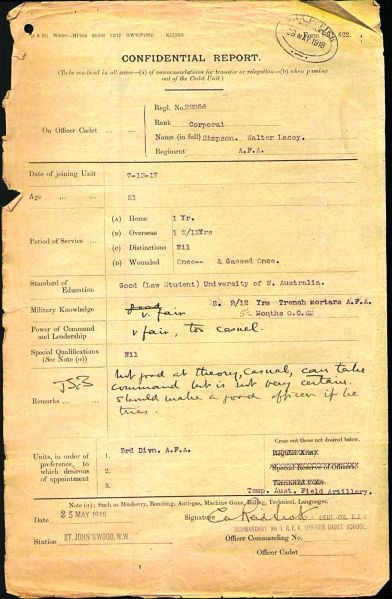 CONFIDENTIAL REPORT.
(To be rendered in all cases—(a) of recommendations for transfer or relegation—(b) when passing
out of the Cadet Unit.)
On Officer Cadet ... ...
Regl. No. 22056
Rank Corporal
Name (in full) Simpson. Walter Lacey.
Regiment A.F.A.
Date of joining Unit 7-12-17
Age ,, ... 21
Period of Service ... ...
(A) Home 1 Yr.
(B) Overseas 1 2/12Yrs
(C) Distinctions Nil
(D) Wounded Once-- & Gassed Once.
Standard of Education Good (Law Student) University of W. Australia.
Military Knowledge good v. fair 2. 2/12 Yrs Trench Mortars A.F.A.
Months O.C.
Power of Command and Leadership v fair, too casual.
Special Qualifications (See Note (a)) Nil
Remarks ... ... not good at theory, casual, can take
command but is not very certain.
Should make a good officer if he
tries.
Units, in order of preference, to which desirous of appointment
1. 3rd Divn. A.F.A.
2.
3.
Cross out those not desired below.
Special Reserve of Officers
Temp. Aust. Field Artillery.
Note (a): Such as Musketry, Bombing, Anti-gas, Machine Guns, Riding, Technical, Languages.
Date 25 MAY 1918
Signature LIEUT-COL. R.F.A.
COMMANDANT No 1 R.F.A. OFFICER CADET SCHOOL.
Station ST. JOHN'S WOOD, N.W.
Officer Commanding No.
Officer Cadet